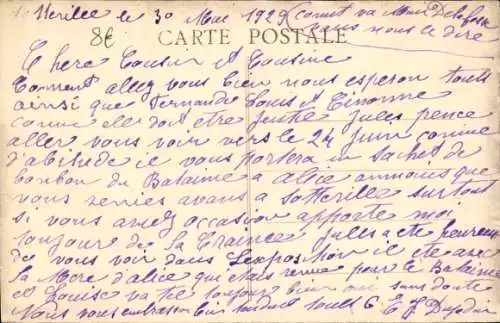 Sotteville le 30 Mai 1929 (Comment va Mr Delafosse
vous nous le dire
8€
CARTE POSTALE
Chere Cousin et Cousine
Comment allez vous bien nous esperon touts
ainsi que Fernande Louis et
comme elle doit etre jules pence
aller vous voir vers le 24 juin comme
d'abitude il vous portera un sachet de
bonbon du Bataime a alice animons que
vous veniez avans a Sotteville surtout
si vous aviez occasion apporte moi
toujour de la jules a ete heureux
de vous voir dans Lexposition il ete avec
la Mere d'alice que etais venue pour le Bataime
et Louise va tel toujour bien oui sans doute
Nous vous embrasson bien touts E. J Dujardin